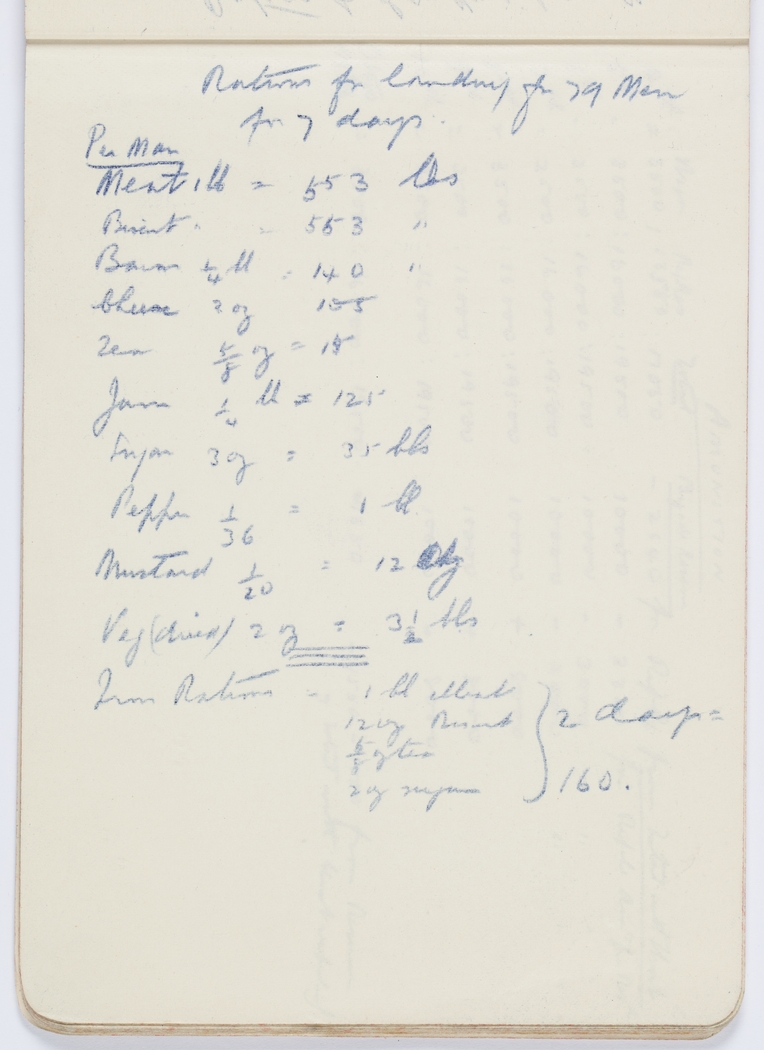 Rations for landing for 79 Men
for 7 days.
Per Man
Meat 1 lb = 553 lbs
Biscuit " = 553 "
Bacon 1/4 lb = 140 "
Cheese 2 oz 155
Tea 5/8 oz = 18
Jam 1/4 lb = 125
Sugar 3 oz = 35 lbs
Pepper 1/36 = 1 lb.
Mustard 1/20 = 12 oz
Veg (dried) 2 oz = 3 1/2 lbs
Iron Rations = 1 lb Meat
12 oz Biscuit
5/8 oz tea
2 oz sugar
2 days =
160.